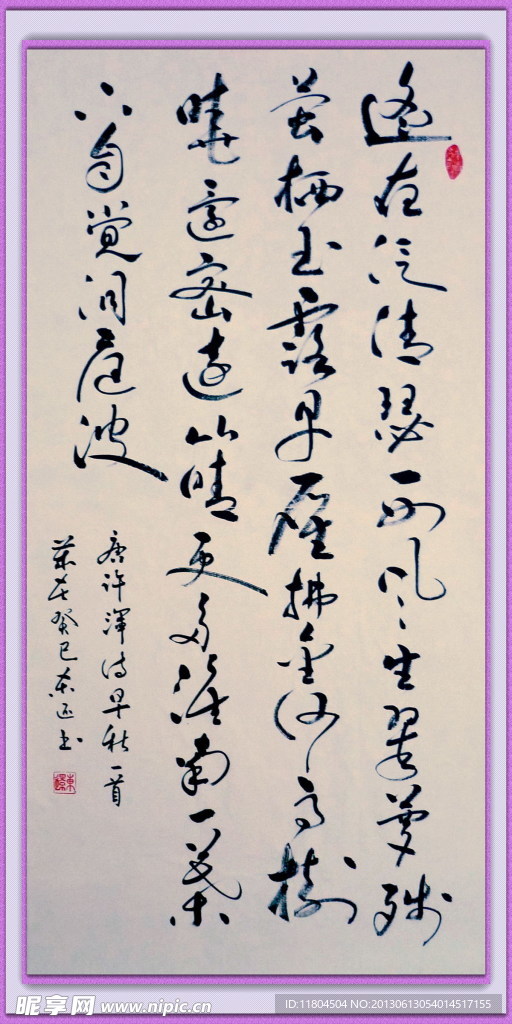 遥夜泛清瑟西风生翠萝残
萤栖玉露早雁拂金河高树
晓还密远山晴更多淮南一叶
下自觉洞庭波
唐许浑诗早秋一首
癸巳 书
昵享网 www.nipic.cn
ID:11804504 NO:20130613054014517155